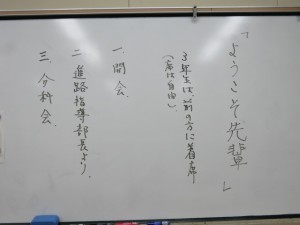 「ようこそ先輩」
3年生は、前の方に着席
(席は自由)、
一、開会、
二、進路指導部長より、
三、分科会、